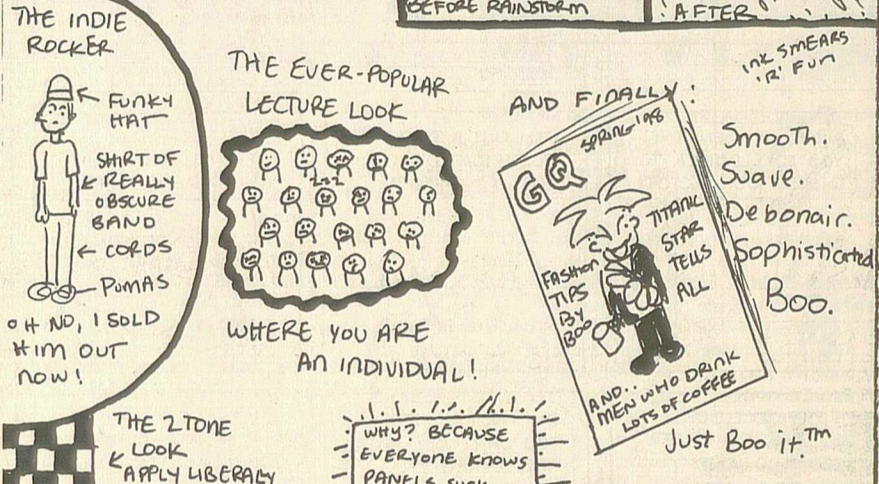 BEFORE RAINSTORM
AFTER
THE INDIE
ROCKER
FUNKY
HAT
SHIRT OF
REALLY
OBSCURE
BAND
CORDS
PUMAS
OH NO, I SOLD
HIM OUT
NOW!
THE EVER-POPULAR
LECTURE LOOK
ZZZ
WHERE YOU ARE
AN INDIVIDUAL!
INK SMEARS
'R' FUN
AND FINALLY:
SPRING '98
GQ
TITANIC
STAR
TELLS
ALL
FASHION
TIPS
BY
BOO
AND..
MEN WHO DRINK
LOTS OF COFFEE
Smooth.
Suave.
Debonair.
Sophisticated
Boo.
Just Boo it.™
THE 2 TONE
LOOK
APPLY LIBERALY
WHY? BECAUSE
EVERYONE KNOWS
PANELS SUCK